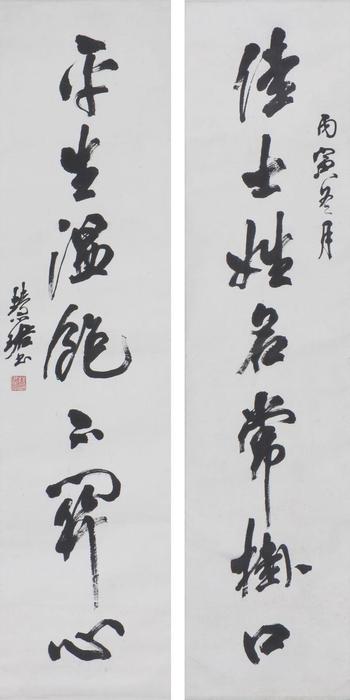 丙寅冬月
佳士姓名常掛口
平生温飽不關心
慧珺书